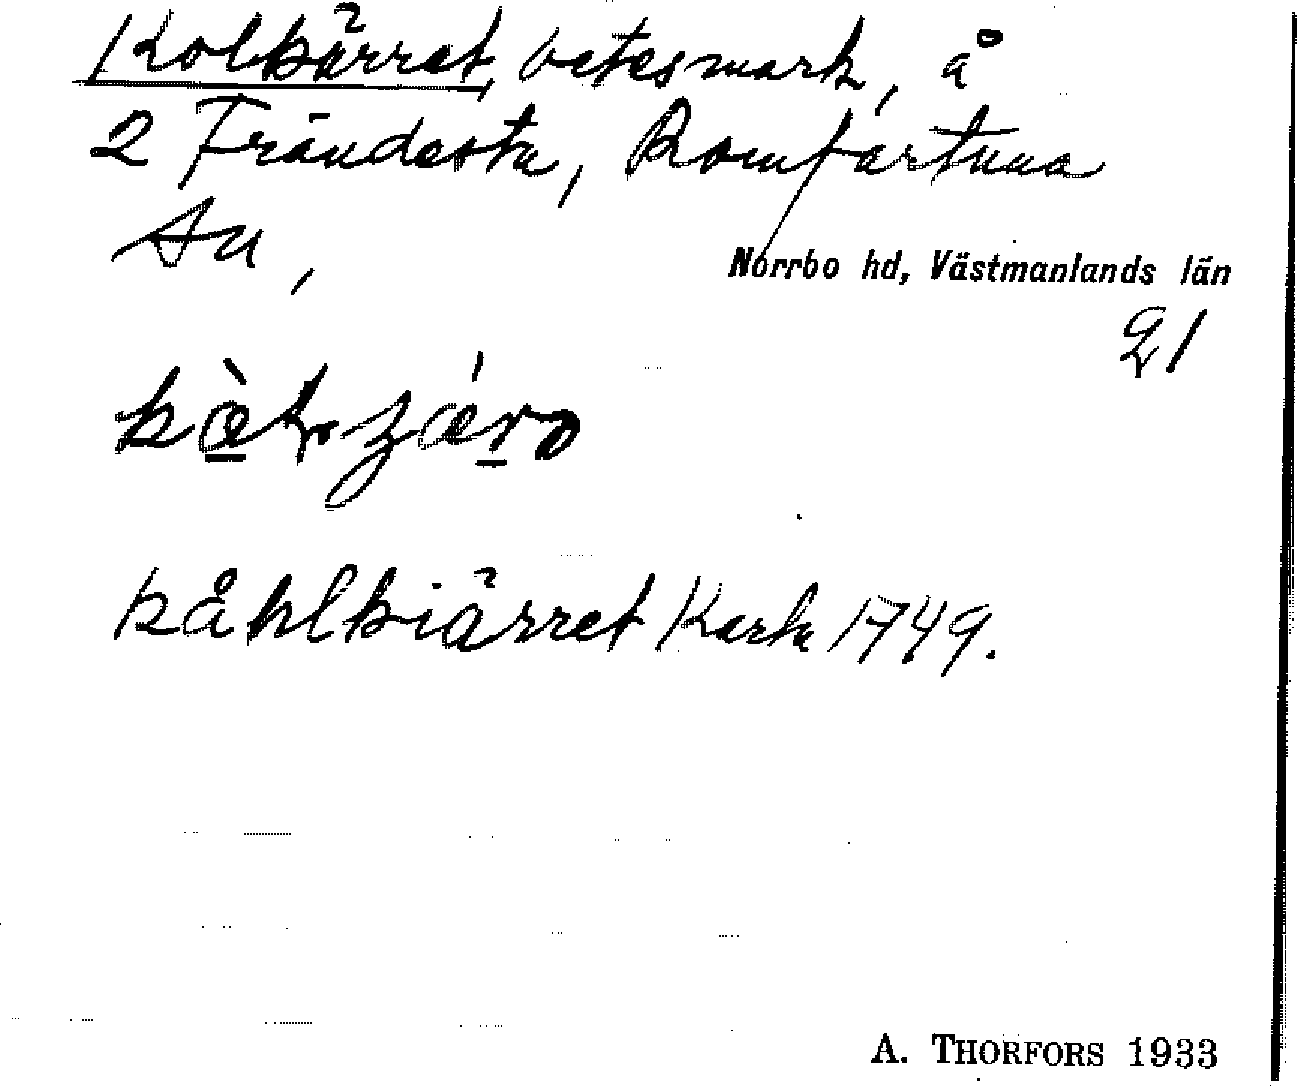 Kolkärret, betesmark, å
2 Frändesta, Romfartuna
sn,
Norrbo hd, Västmanlands län
21
kåhlkiärret Karta 1749.
A. THORFORS 1933